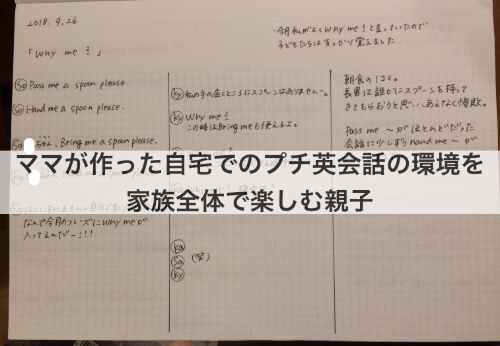 2018.9.26
「Why me?」
今月 私がよくWhy me?と言っていたので
子どもたちはすっかり覚えました。
Pass me a spoon please.
Hand me a spoon please.
Bring me a spoon please.
なんで今月のフレーズにWhy meが
入ってるんだー!!!
私の手の届くところにスプーンはありません。
Why me?
この時はBring meも使えるよ。
(笑)
朝食の1コマ。
長男は誰かにスプーンを取って
きてもらおうと思い、あえなく惨敗。
Pass me ～がほとんどだった
会話に少しずつhand me ～が
ママが作った自宅でのプチ英会話の環境を
家族全体で楽しむ親子